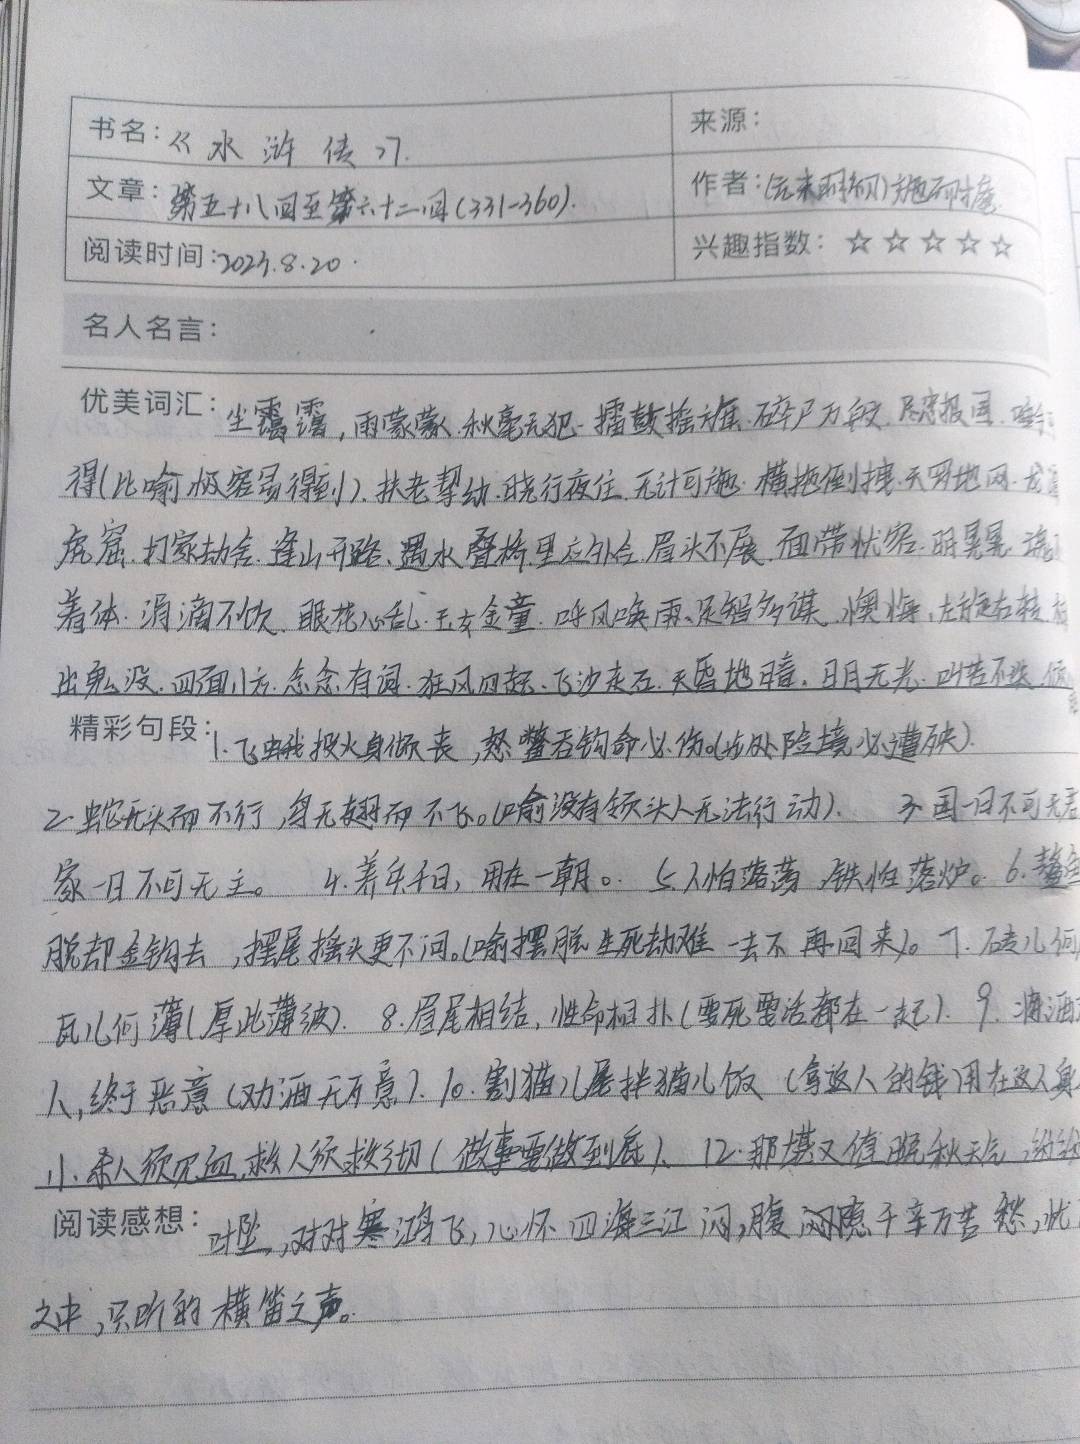 书名：《水浒传》.
来源：
文章：第五十八回至第六十二回(331-360).
作者：(元末明初)施耐庵
阅读时间：2023.8.20.
兴趣指数：☆☆☆☆☆
名人名言：
优美词汇：尘霭霭，雨蒙蒙.秋毫无犯.擂鼓摇旗.碎尸万段.尽忠报国.唾手
得(比喻极容易得到).扶老挈幼.晓行夜住.无计可施.横拖倒拽.天罗地网.龙潭
虎窟.打家劫舍.逢山开路、遇水叠桥.里应外合.眉头不展.面带忧容.明晃晃.
着体.涓滴不饮.眼花心乱.玉女金童.呼风唤雨、足智多谋.懊悔,左旋右转.
出鬼没.四面八方.念念有词.狂风四起、飞沙走石.天昏地暗.日月无光.叫苦不迭
精彩句段：1.飞蛾投火身倾丧,怒鳖吞钩命必伤。(比处险境必遭殃).
2.蛇无头而不行,鸟无翅而不飞。(喻没有领头人无法行动). 3.国一日不可无君
家一日不可无主。 4.养军千日,用在一朝。 5.人怕落荡,铁怕落炉。 6.鳌鱼
脱却金钩去,摆尾摇头更不问。(喻摆脱生死劫难一去不再回来)。 7.砖儿何
瓦儿何薄(厚此薄彼). 8.眉尾相结,性命相扑(要死要活都在一起). 9.将酒
人,终于恶意(劝酒无万意). 10.割猫儿尾拌猫儿饭(拿这人的钱用在这人身
11.杀人须见血,救人须救彻(做事要做到底)、 12.那堪又值晚秋天气,纷纷
阅读感想：叶坠,对对寒鸿飞,心怀四海三江闷,腹隐千辛万苦愁,忧
之中,只听的横笛之声。